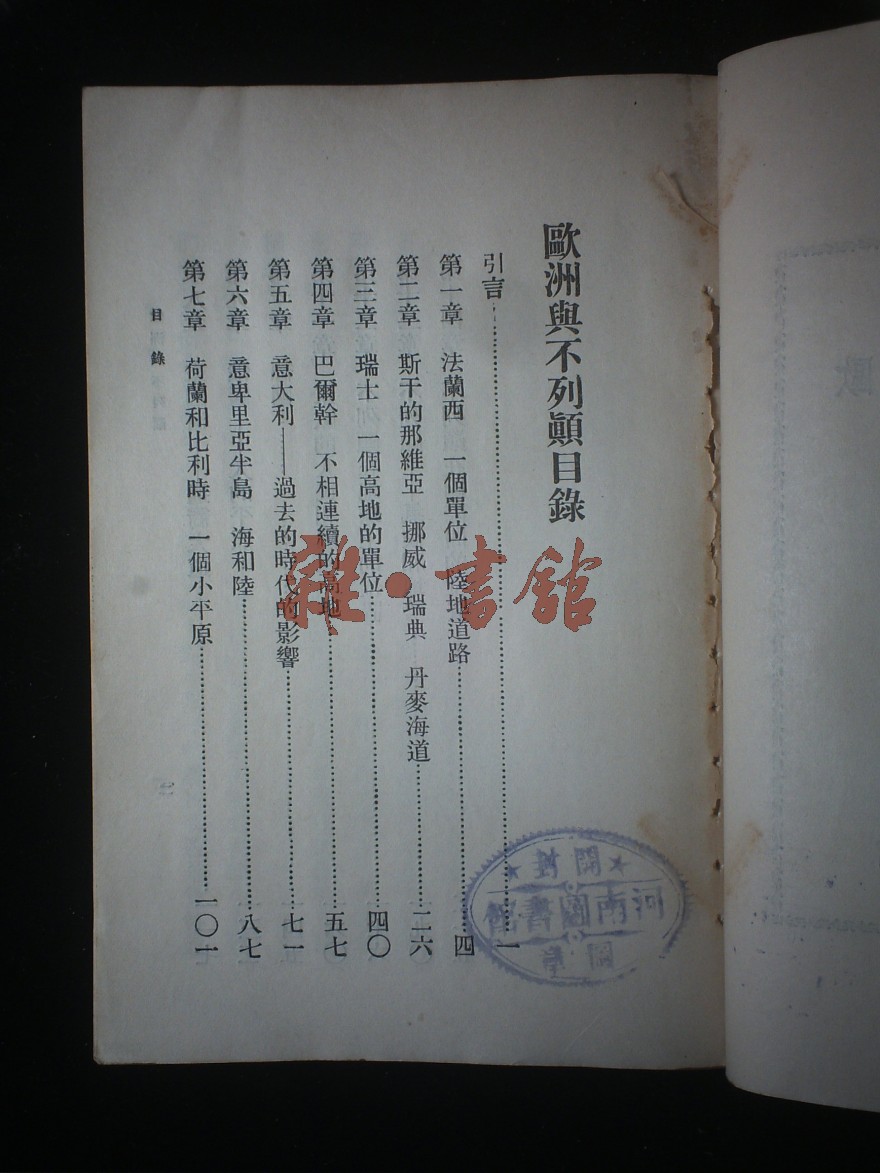 歐洲與不列顛目錄
引言……一
第一章　法蘭西　一個單位　陸地道路……四
第二章　斯干的那維亞　挪威　瑞典　丹麥海道……二六
第三章　瑞士　一個高地的單位……四〇
第四章　巴爾幹　不相連續的高地……五七
第五章　意大利——過去的時代的影響……七一
第六章　意卑里亞半島　海和陸……八七
第七章　荷蘭和比利時　一個小平原……一〇一
目錄
雜·書館
開封
河南圖書館
歐